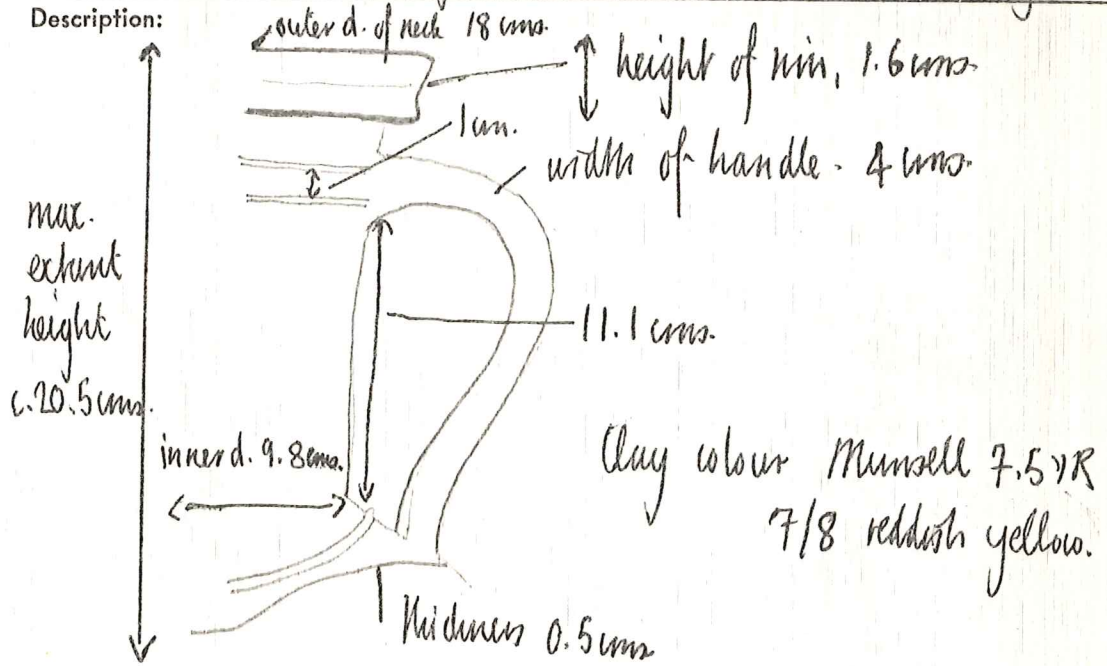 Description:
outer d. of neck 18 cms.
height of rim, 1.6 cms.
1 cm.
width of handle - 4 cms.
max.
extant
height
c.20.5 cms.
11.1 cms.
inner d. 9.8 cms.
Clay colour Munsell 7.5YR
7/8 reddish yellow.
Thickness 0.5 cms